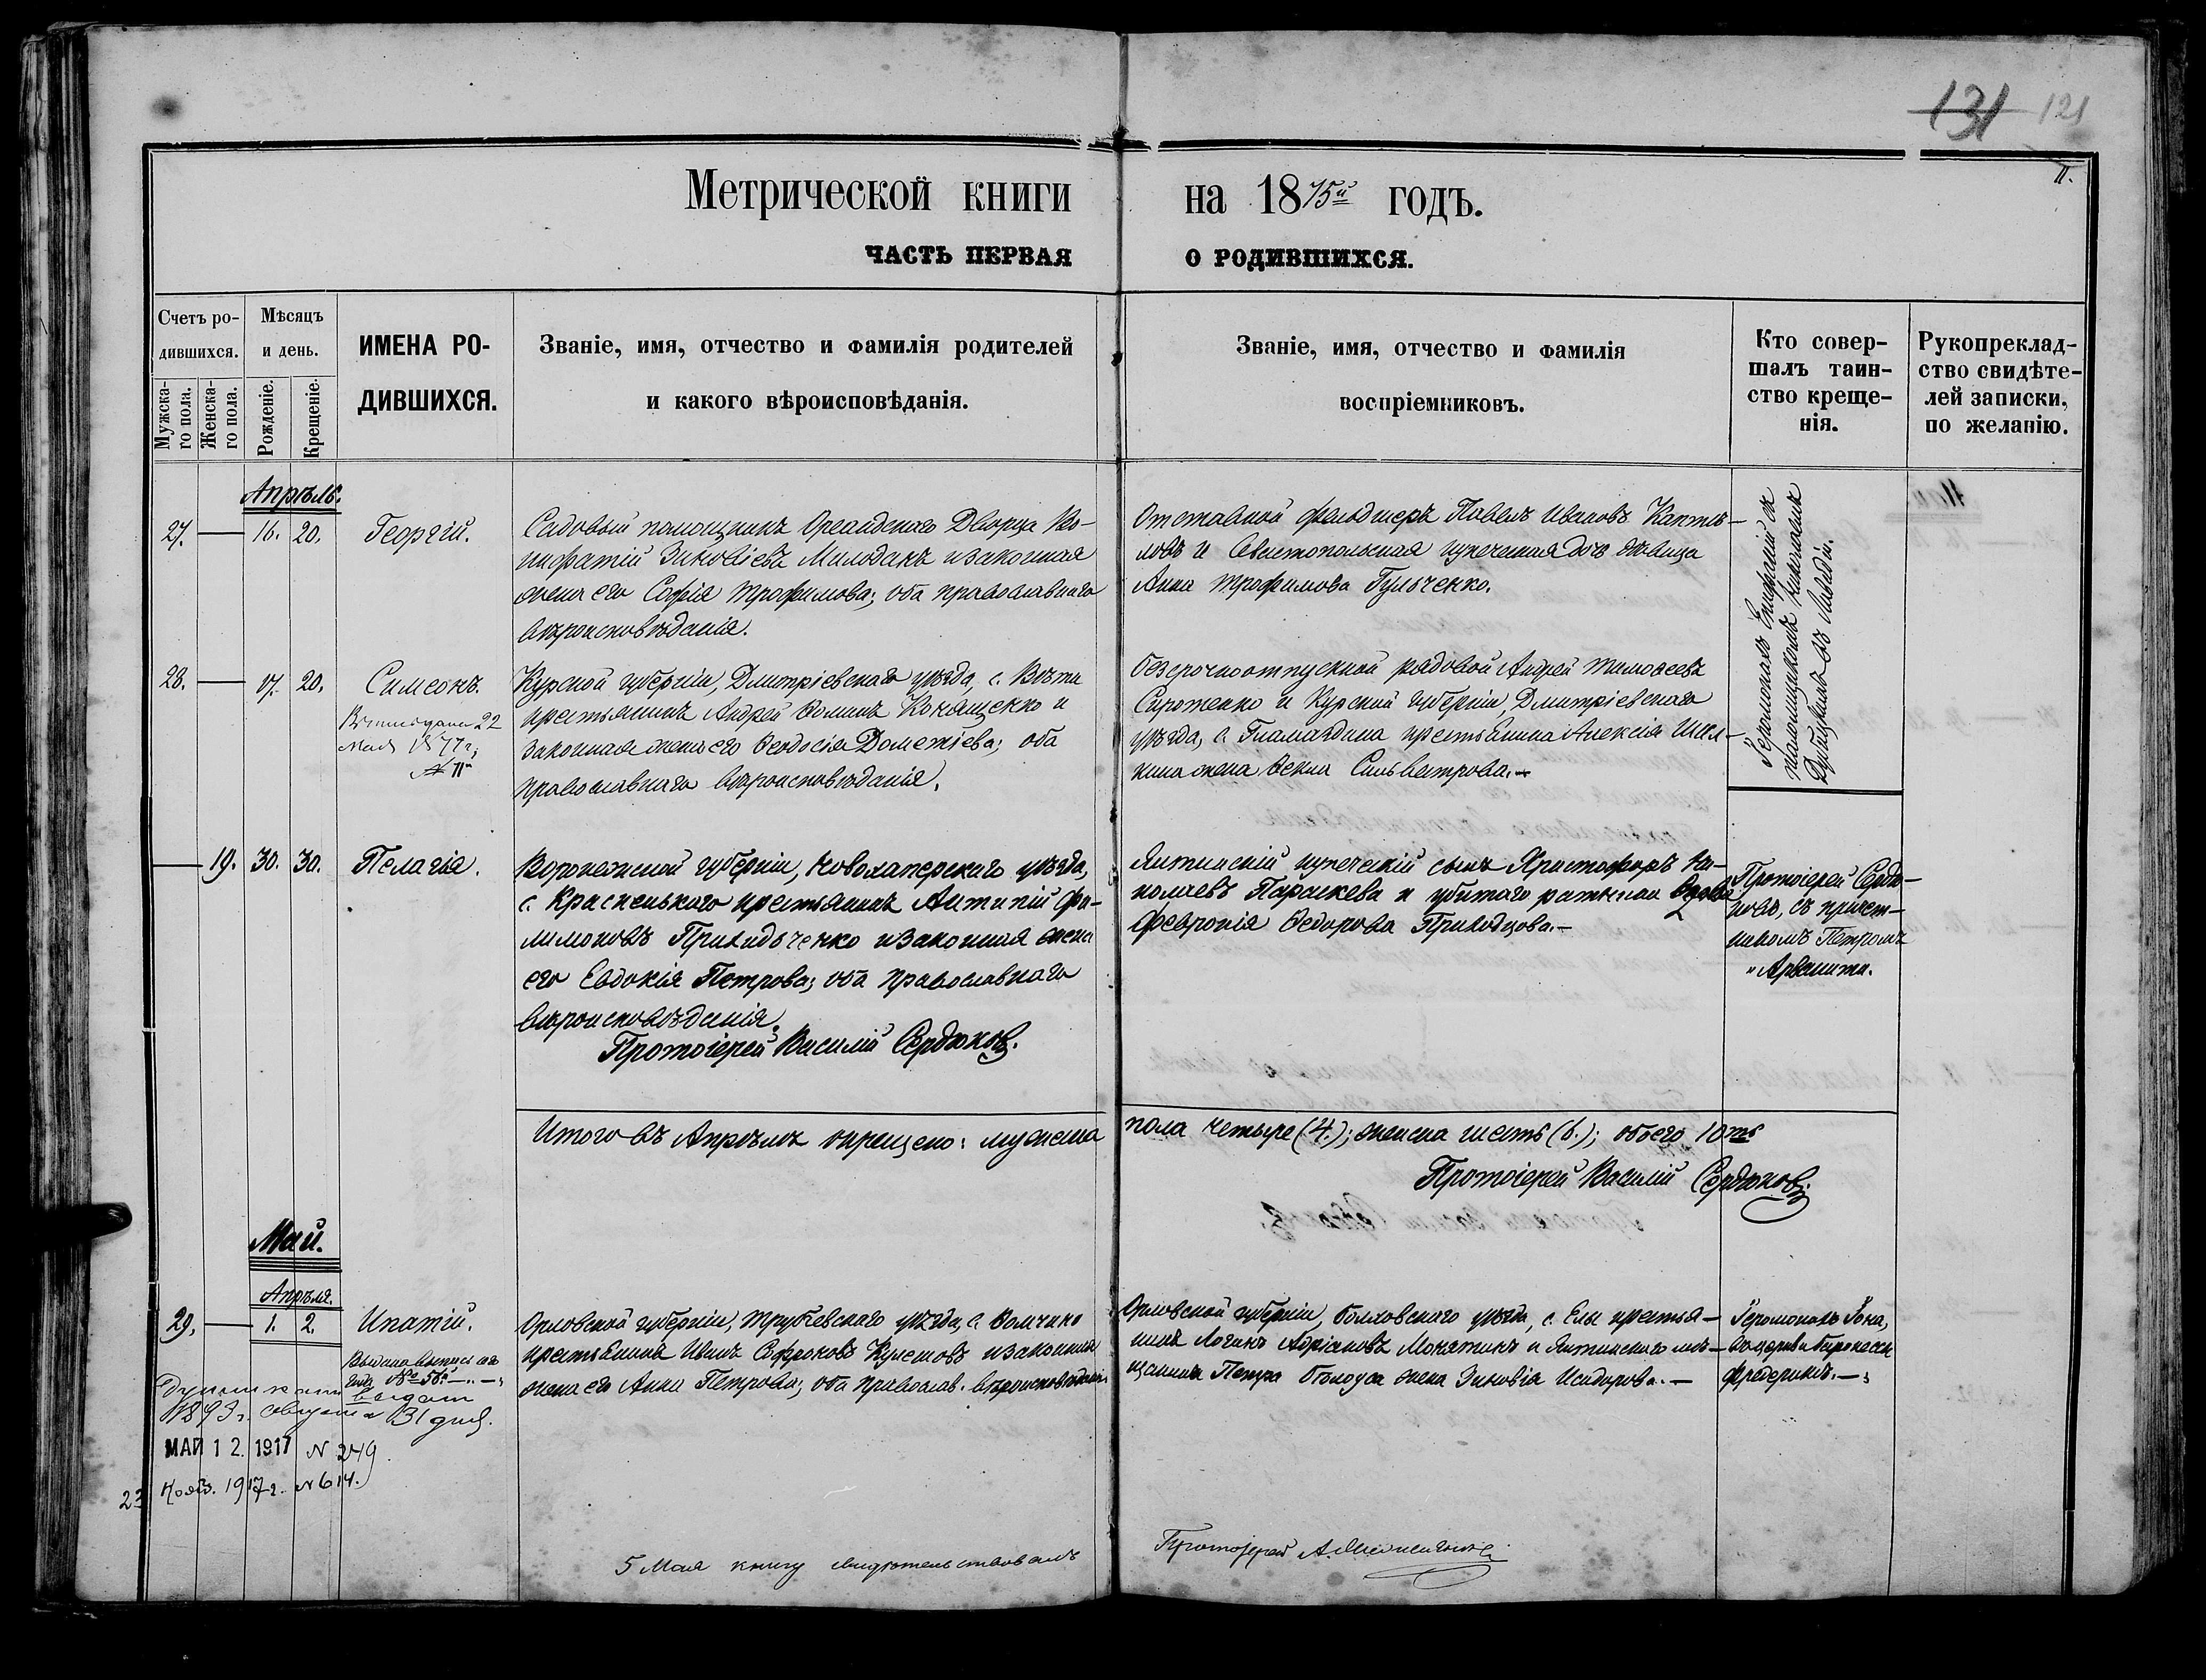 131 121
11.
Метрической книги на 1875й годъ.
ЧАСТЬ ПЕРВАЯ О РОДИВШИХСЯ.
Счетъ ро-
дившихся.
Мужска-
го пола.
Женска-
го пола.
Мѣсяцъ
и день.
Рожденіе.
Крещеніе.
ИМЕНА РО-
ДИВШИХСЯ.
Званіе, имя, отчество и фамилія родителей
и какого вѣроисповѣданія.
Званіе, имя, отчество и фамилія
воспріемниковъ.
Кто совер-
шалъ таин-
ство креще-
нія.
Рукопреклад-
ство свидѣте-
лей записки,
по желанію.
Апрѣль.
27. — 16. 20. Георгій.
Садовый помощникъ Ореандскаго Дворца Во-
нифатій Зиновіевъ Милодакъ и законная
жена его Софія Трофимова; оба православнаго
вѣроисповѣданія.
Отставной фельдшеръ Павелъ Ивановъ Кантѣ-
ловъ и Севастопольская купеческая дочь дѣвица
Анна Трофимова Гульченко.
Іеромонахъ Епифаній съ
псаломщикомъ Николаемъ
въ Ливадіи.
28. — 17. 20. Симеонъ.
22
Мая 1877 г.
№ 11
Курской губерніи, Дмитріевскаго уѣзда, с. Вѣти
крестьянинъ Андрей Ѳоминъ Конященко и
законная жена его Ѳеодосія Дометіева; оба
православнаго вѣроисповѣданія.
безсрочноотпускной рядовой Андрей Тимоѳеевъ
Сиротенко и Курской губерніи, Дмитріевскаго
уѣзда, с. Гламаздина крестьянина Алексія Шел-
кина жена Ѳекла Сильвестрова.—
— 19. 30. 30. Пелагія.
Воронежской губерніи, Новохаперскаго уѣзда,
с. Красненькаго крестьянинъ Антипій Фи-
лимоновъ Приходьченко и законная жена
его Евдокія Петрова; оба православнаго
вѣроисповѣданія.
Протоіерей Василій Сердюковъ.
Ялтинскій купеческій сынъ Христофоръ Ни-
колаевъ Параскева и убитаго ратника вдова
Февронія Ѳедорова Приходцова.—
Протоіерей Сердю-
ковъ, съ причет-
никомъ Петромъ
Арванити.
Итого въ Апрѣлѣ окрещено: мужеска пола четыре (4.); женска шесть (6.); обоего 10ть
Протоіерей Василій Сердюковъ.
Май.
Апрѣля.
29. — 1. 2. Ипатій.
Выдана выпись
№ 56й
1893 г. августа 31 дня.
МАЙ 12. 1917 N 249.
23 Нояб. 1917 г. N 614.
Орловской губерніи, Трубчевскаго уѣзда, с. Волчино
крестьянинъ Иванъ Софроновъ Кулешовъ и законная
жена его Анна Петрова; оба православ. вѣроисповѣданія
Орловской губерніи, болховскаго уѣзда, с. Елы крестья-
нинъ Логинъ Адріановъ Монятинъ и Ялтинскаго мѣ-
щанина Петра Бѣлоуса жена Зиновія Исидорова.—
Іеромонахъ Іона,
во церкви баронессы
Фредериксъ.—
5 Мая книгу свидѣтельствовалъ Протоіерей А.